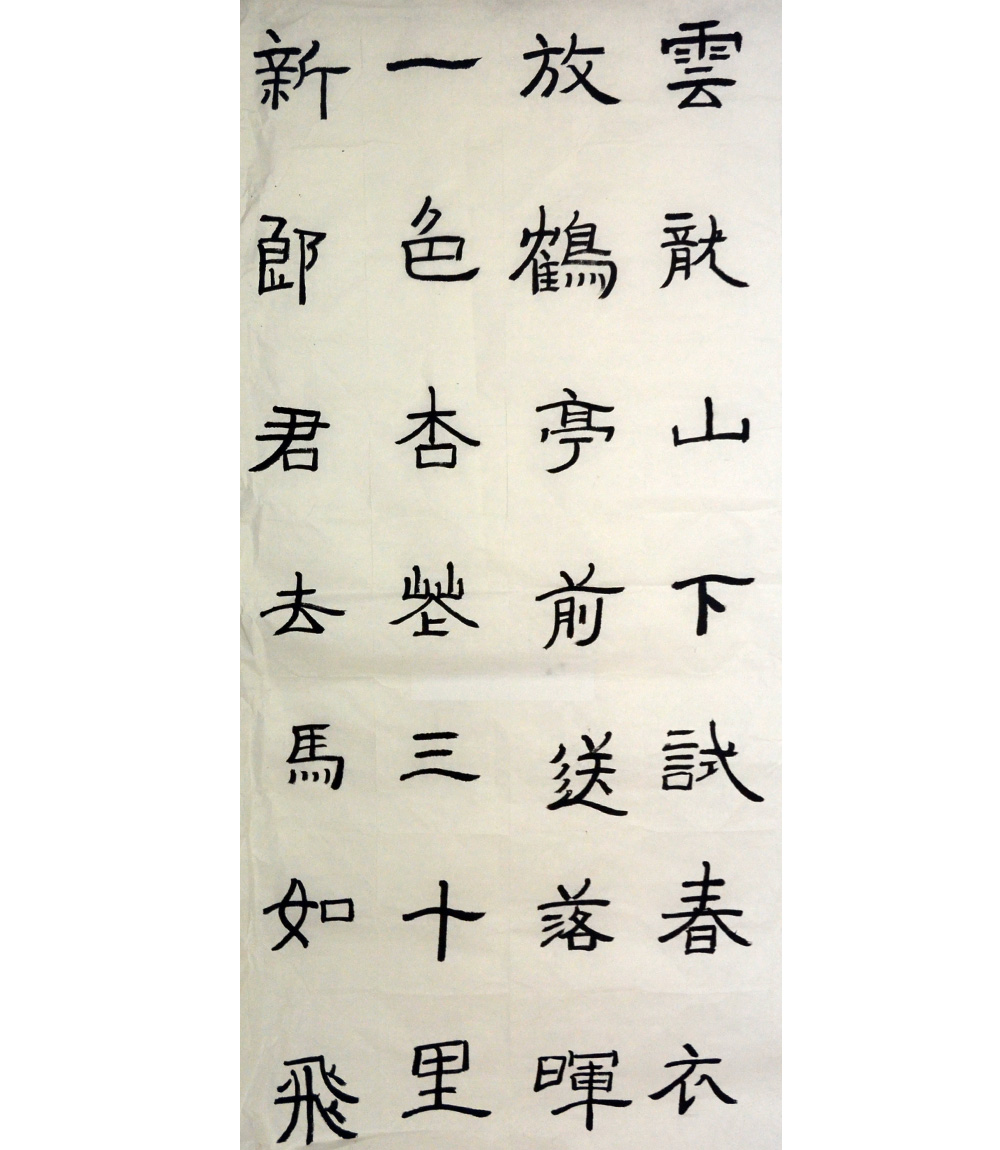 雲龍山下試春衣
放鶴亭前送落暉
一色杏花三十里
新郎君去馬如飛